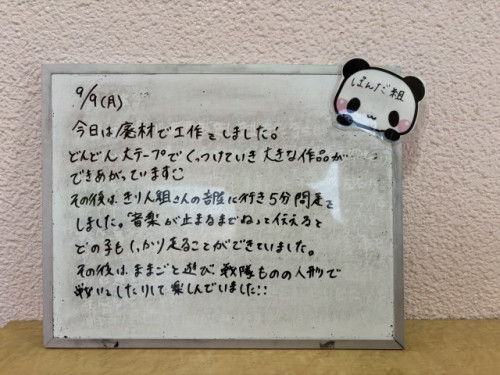 ぱんだ組
9/9(月)
今日は廃材で工作をしました!
どんどん大テープでくっつけていき大きな作品が
できあがっています
その後は、きりん組さんの部屋に行き5分間走を
しました。「音楽が止まるまでね」って伝えると
どの子もしっかり走ることができていました。
その後は、ままごと遊び、戦隊ものの人形で
戦いをしたりして楽しんでいました!!